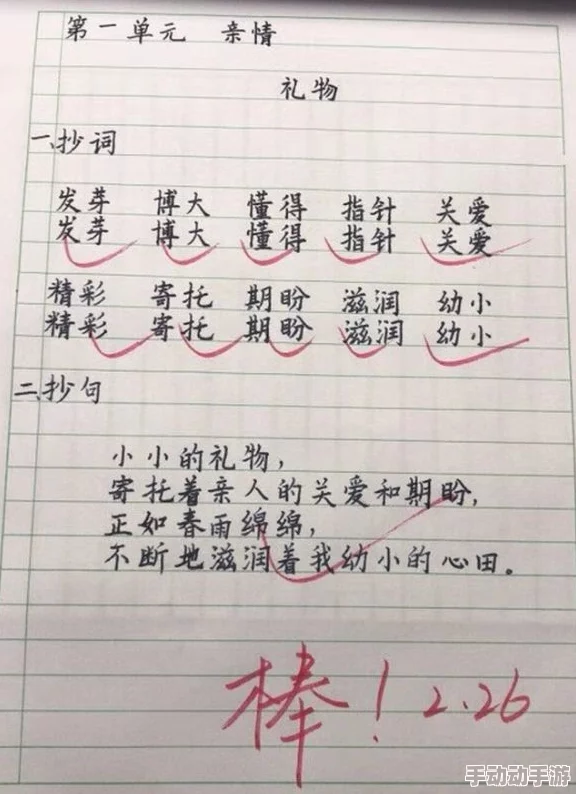 第一单元 亲情
礼物
一、抄词
发芽 博大 懂得 指针 关爱
发芽 博大 懂得 指针 关爱
精彩 寄托 期盼 滋润 幼小
精彩 寄托 期盼 滋润 幼小
二、抄句
小小的礼物，
寄托着亲人的关爱和期盼，
正如春雨绵绵，
不断地滋润着我幼小的心田。
棒！2.26
手动动手游